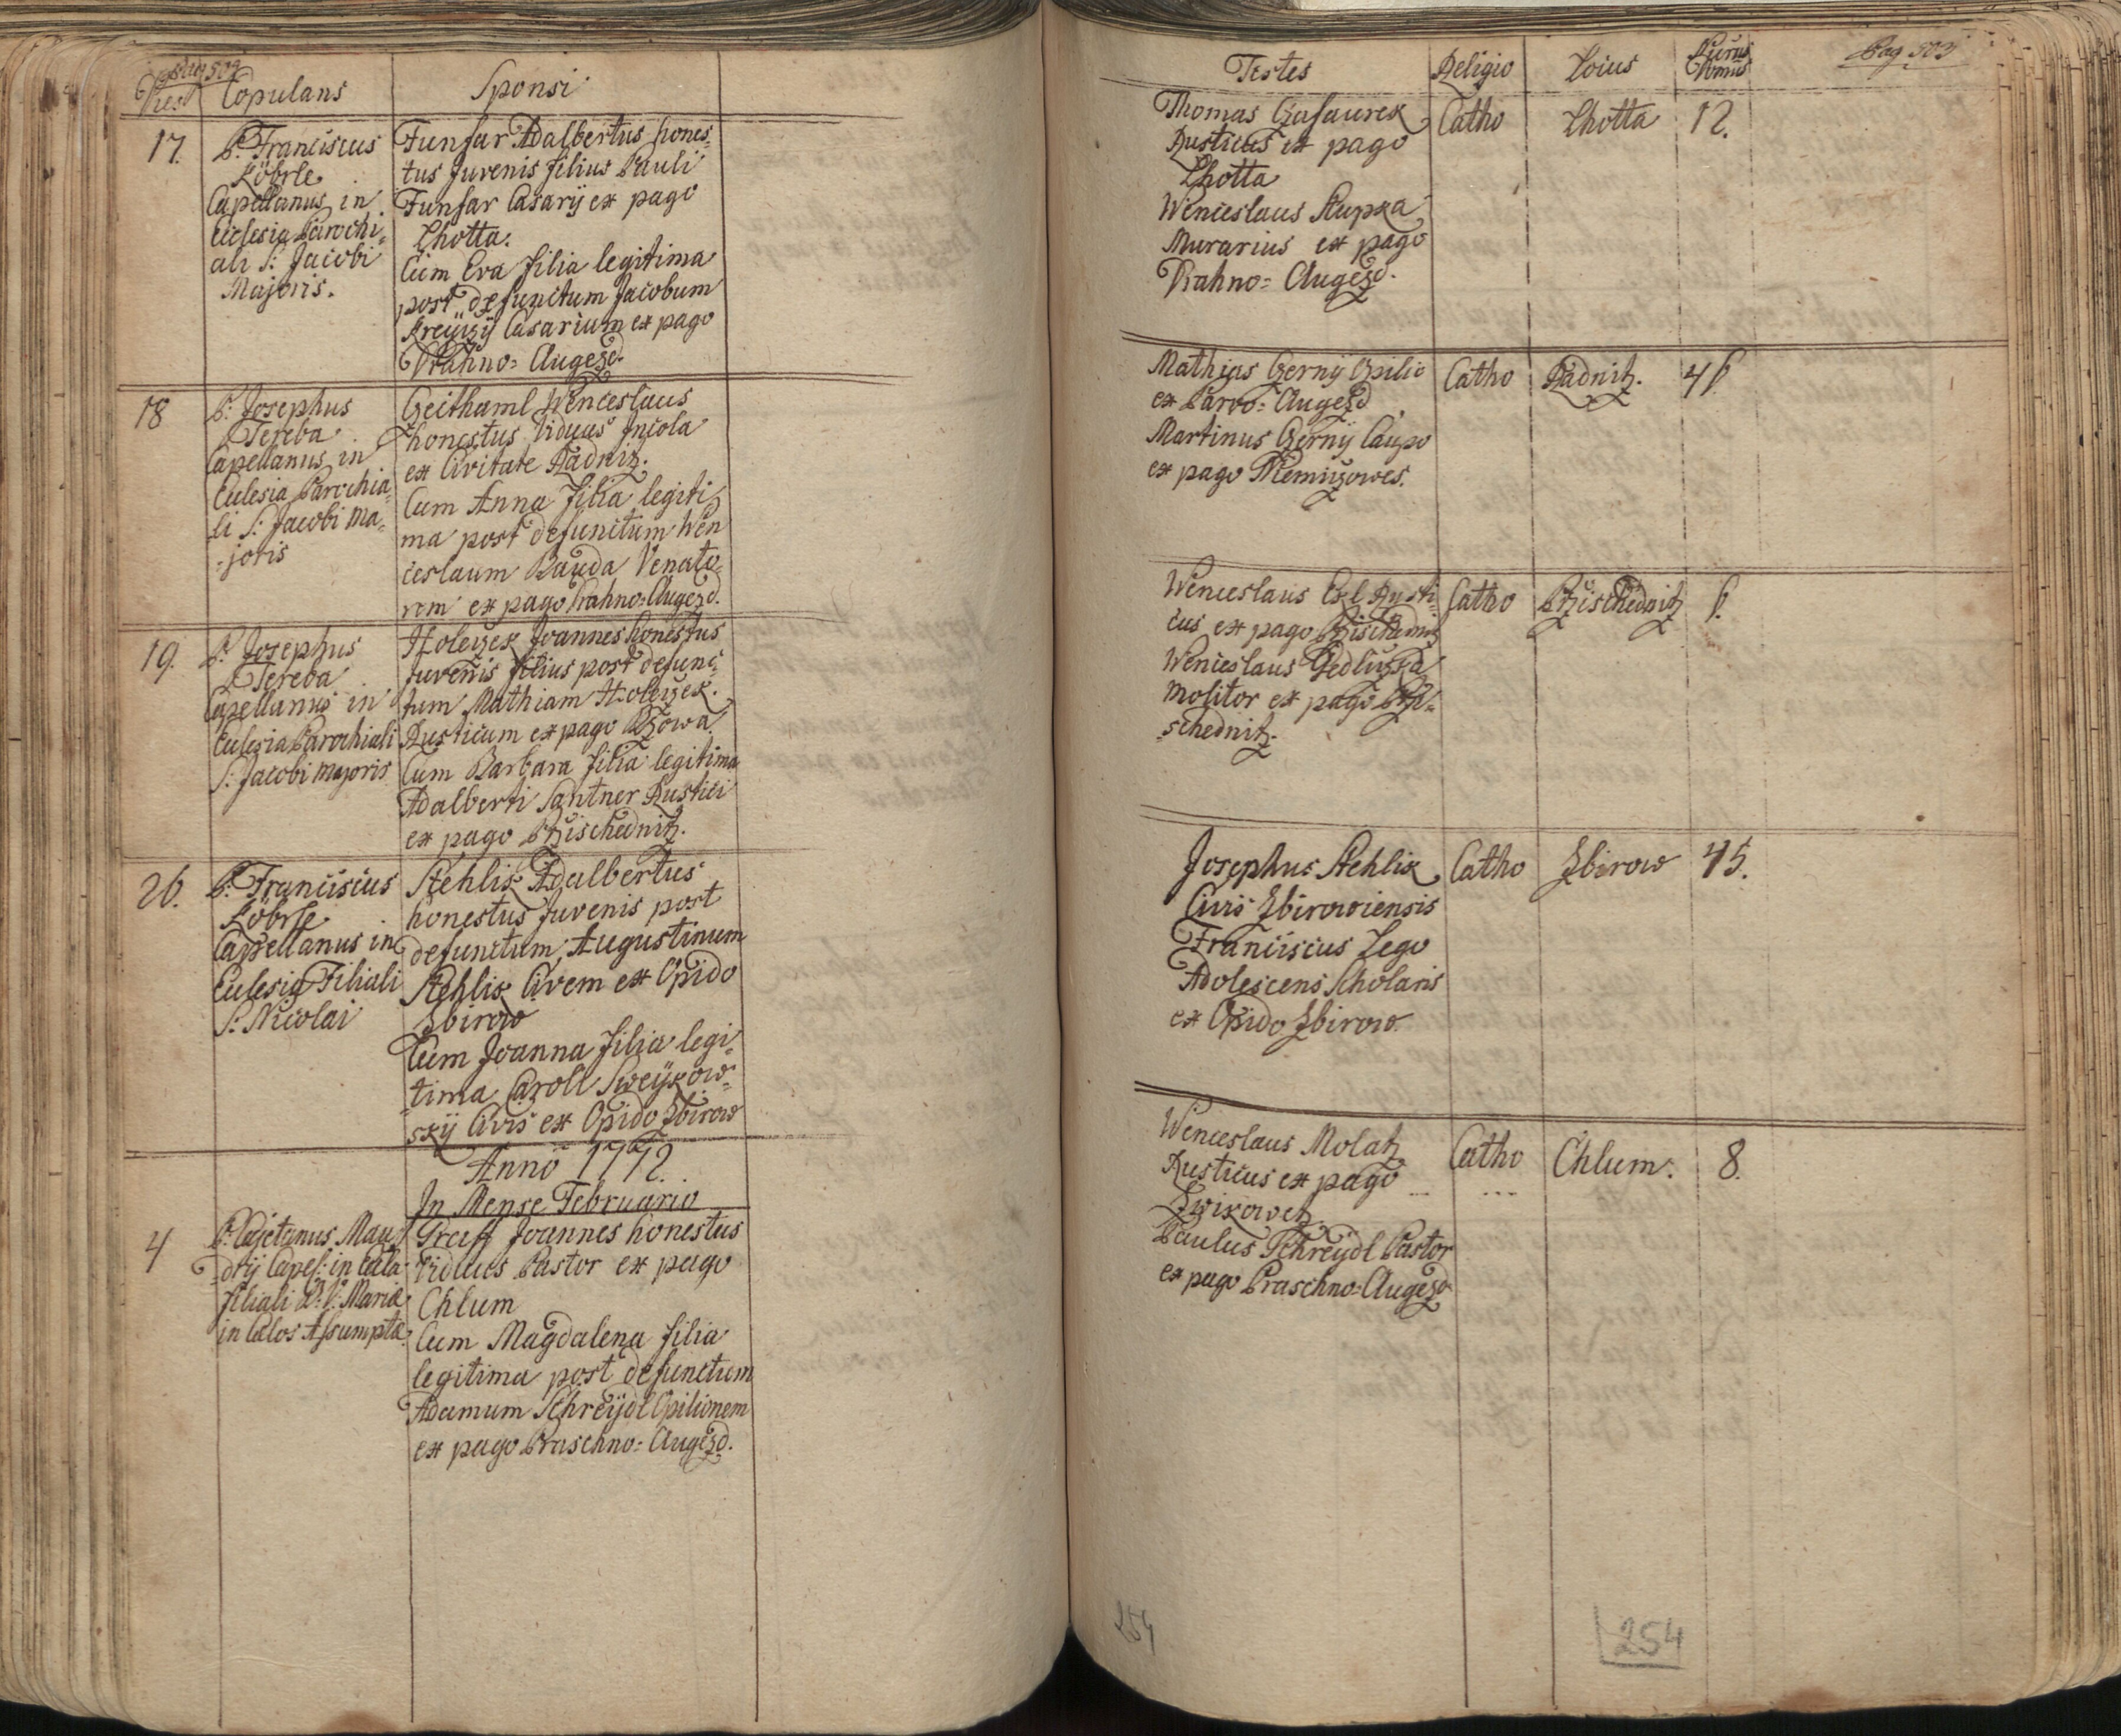 Pag 502
Dies Copulans Sponsi
17. P. Franciscus
Löbrle
Capellanus in
Ecclesia Parochi-
ali S. Jacobi
Majoris.
Funfar Adalbertus hones-
tus Juvenis filius Pauli
Funfar Casarij ex pago
Lhotta.
Cum Eva filia legitima
post defunctum Jacobum
Kreyczy Casarium ex pago
Prahno= Augezd.
18 P. Josephus
Tereba
Capellanus in
Ecclesia Parochia-
li S. Jacobi Ma-
-joris
Geithaml Wenceslaus
honestus Viduus Incola
ex Civitate Radnitz.
Cum Anna filia legiti
ma post defunctum Wen
ceslaum Bauda Venato-
rem ex pago Prahno=Augezd.
19. P. Josephus
Tereba
Capellanus in
Ecclesia Parochiali
S. Jacobi Majoris
Holeczek Joannes honestus
Juvenis filius post defunc-
tum Mathiam Holeczek
Rusticum ex pago
Cum Barbara filia legitima
Adalberti Santner Rustici
ex pago Przischednitz.
26. P. Franciscus
Löbrle
Capellanus in
Ecclesia Filiali
S. Nicolai
Stehlik Adalbertus
honestus Juvenis post
defunctum Augustinum
Stehlik Civem ex Opido
Zbirow
Cum Joanna filia legi-
tima Caroli Sweykow-
sky Civis ex Opido Zbirow
Anno 1772.
In Mense Februario
4 P. Cajetanus Mau-
dry Capel: in Eccla
filiali B. V. Mariæ
in Cælos Assumptæ
Greiff Joannes honestus
Viduus Pastor ex pago
Chlum
Cum Magdalena filia
legitima post defunctum
Adamum Schreydl Opilionem
ex pago Praschno= Augezd.
Testes Religio Locus Numerus Domus Pag 503
Thomas Catho Lhotta 12.
Rusticus ex pago
Lhotta
Wenceslaus Kupka
Murarius ex pago
Prahno= Augezd.
Mathias Czerny Opilio Catho Radnitz. 46
ex Parvo= Augezd
Martinus Czerny Caupo
ex pago Niemczowes.
Wenceslaus Exl Rusti- Catho Przischednitz 6.
cus ex pago Przischednitz
Wenceslaus Gedliczka
Molitor ex pago Przi-
schednitz.
Josephus Stehlik Catho Zbirow 45.
Civis Zbirowiensis
Franciscus Lego
Adolescens Scholaris
ex Opido Zbirow.
Wenceslaus Molatz Catho Chlum. 8.
Rusticus ex pago
Zwikowetz
Paulus Schreydl Pastor
ex pago Praschno=Augezd
254
254